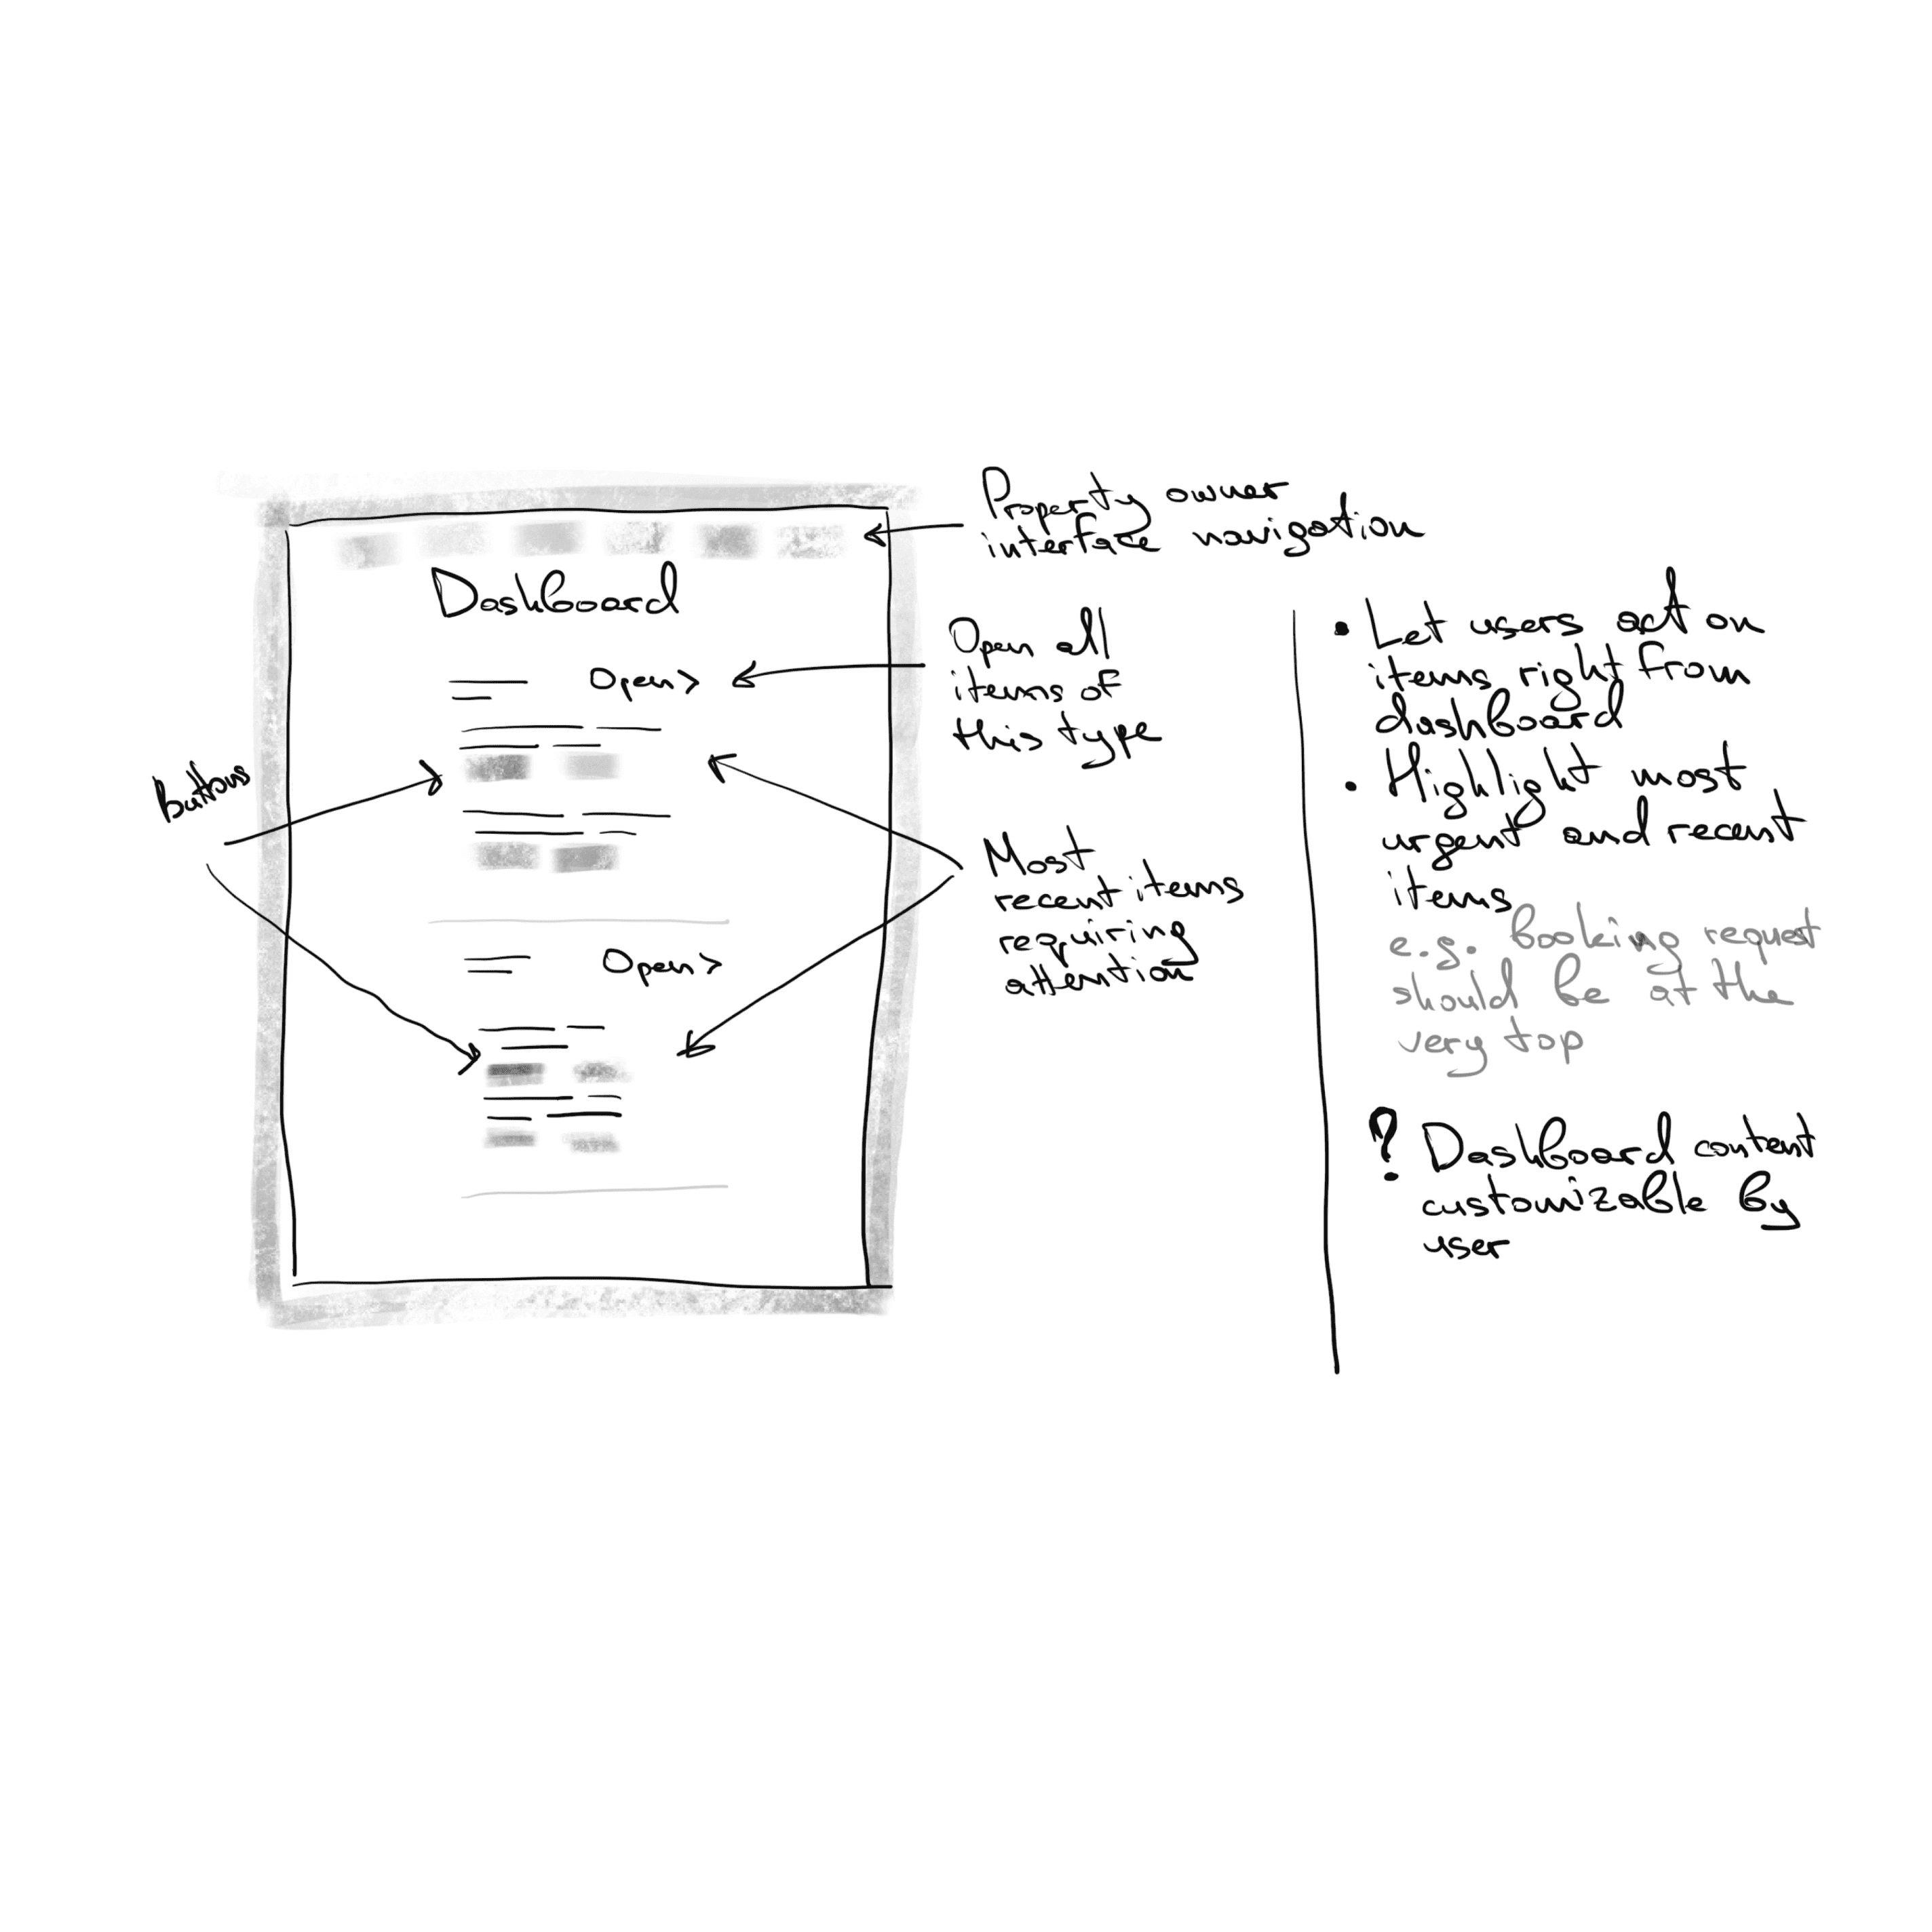 Property owner
interface navigation
Dashboard
Open >
Open all
items of
this type
Buttons
Most
recent items
requiring
attention
Open >
• Let users act on
items right from
dashboard
• Highlight most
urgent and recent
items
e.g. booking request
should be at the
very top
? Dashboard content
customizable by
user